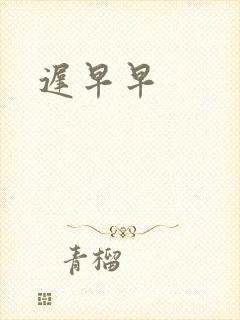 遲早早
青榴